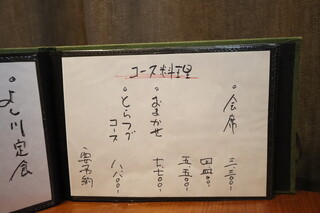 コース料理
○会席
三、三〇〇-
四、四〇〇-
五、五〇〇-
○おまかせ
七、七〇〇-
○とらふぐ
コース
八、八〇〇-
要予約
○よし川定食